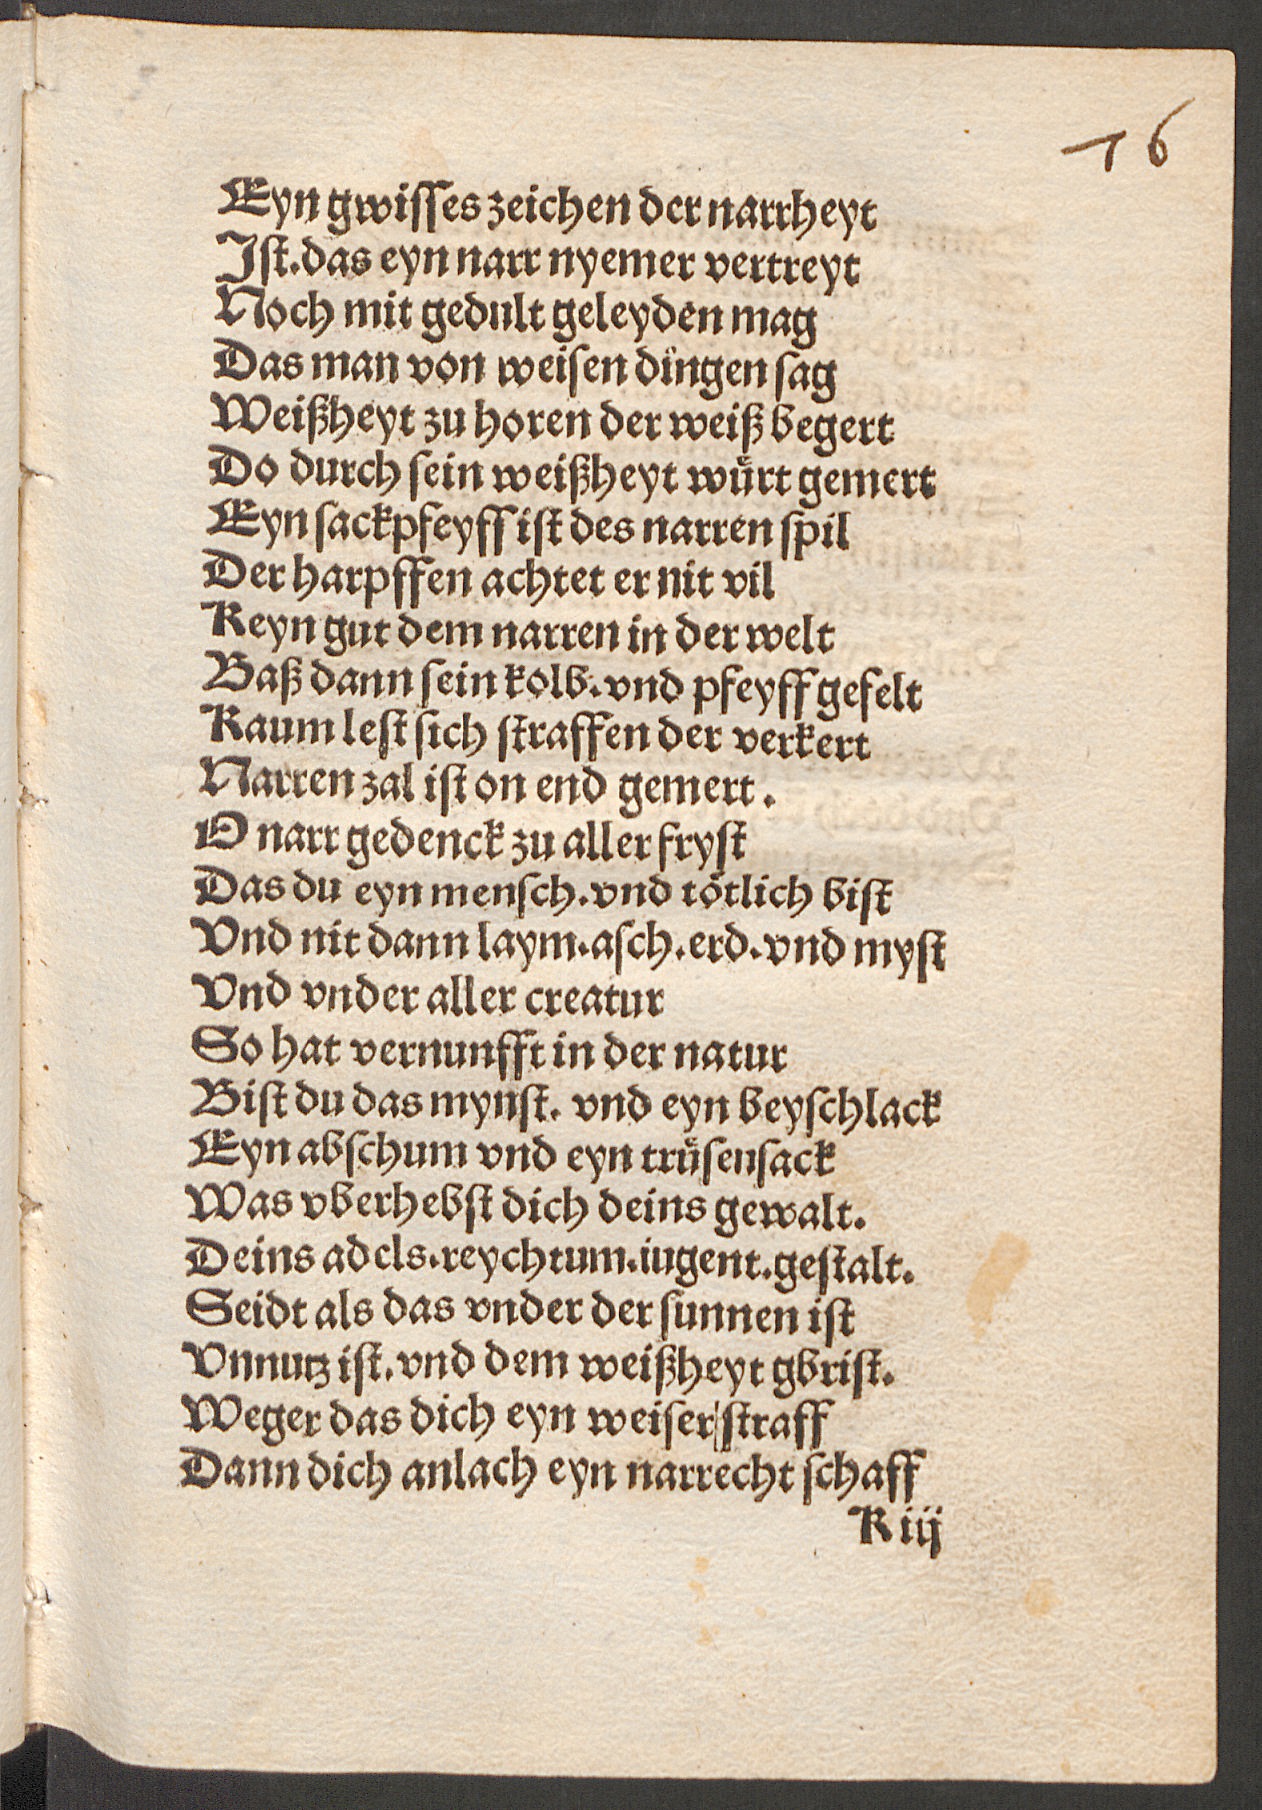 76
Eyn gwisses zeichen der narrheyt
Ist.das eyn narr nyemer vertreyt
Noch mit gedult geleyden mag
Das man von weisen dingen sag
Weißheyt zu horen der weiß begert
Do durch sein weißheyt wuͤrt gemert
Eyn sackpfeyff ist des narren spil
Der harpffen achtet er nit vil
Keyn gut dem narren in der welt
Baß dann sein kolb.vnd pfeyff gefelt
Kaum lest sich straffen der verkert
Narren zal ist on end gemert.
O narr gedenck zu aller fryst
Das du eyn mensch.vnd toͤtlich bist
Vnd nit dann laym.asch.erd.vnd myst
Vnd vnder aller creatur
So hat vernunfft in der natur
Bist du das mynst. vnd eyn beyschlack
Eyn abschum vnd eyn truͤsensack
Was vberhebst dich deins gewalt.
Deins adels.reychtum.iugent.gestalt.
Seidt als das vnder der sunnen ist
Vnnutz ist.vnd dem weißheyt gbrist.
Weger das dich eyn weiser straff
Dann dich anlach eyn narrecht schaff
K iij